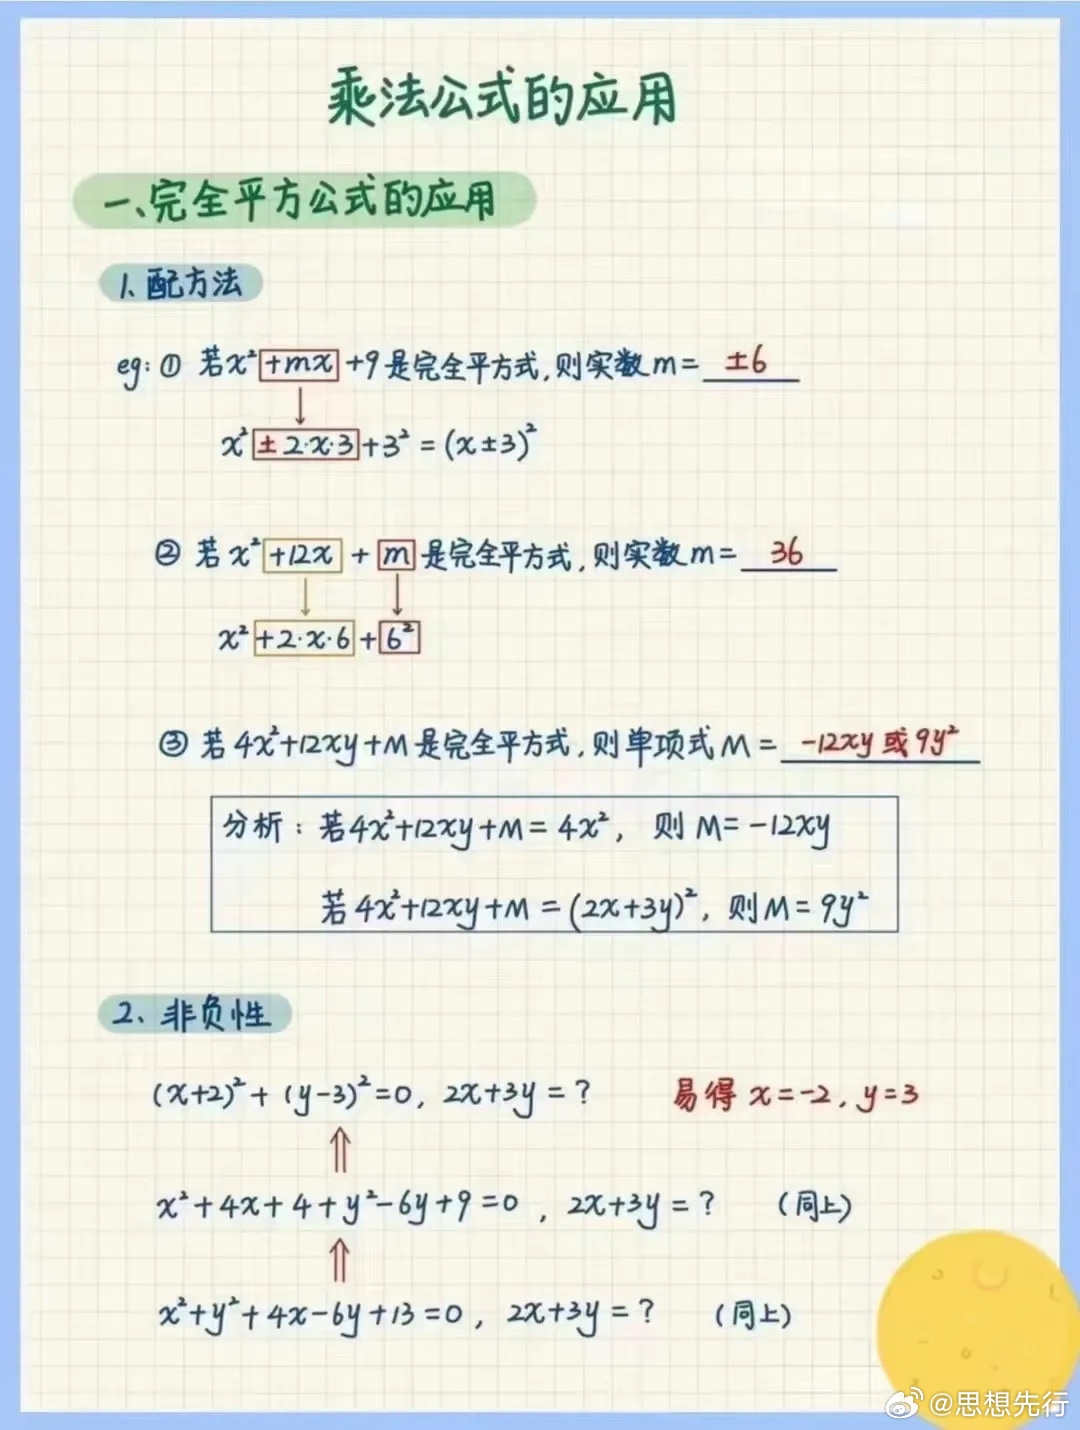 乘法公式的应用
一、完全平方公式的应用
1、配方法
eg: ① 若x²+mx+9是完全平方式,则实数m=±6
x²±2·x·3+3²=(x±3)²
② 若x²+12x+m是完全平方式,则实数m=36
x²+2·x·6+6²
③ 若4x²+12xy+M是完全平方式,则单项式M=-12xy或9y²
分析:若4x²+12xy+M=4x², 则M=-12xy
若4x²+12xy+M=(2x+3y)², 则M=9y²
2、非负性
(x+2)²+(y-3)²=0, 2x+3y=? 易得x=-2, y=3
x²+4x+4+y²-6y+9=0, 2x+3y=? (同上)
x²+y²+4x-6y+13=0, 2x+3y=? (同上)
@思想先行